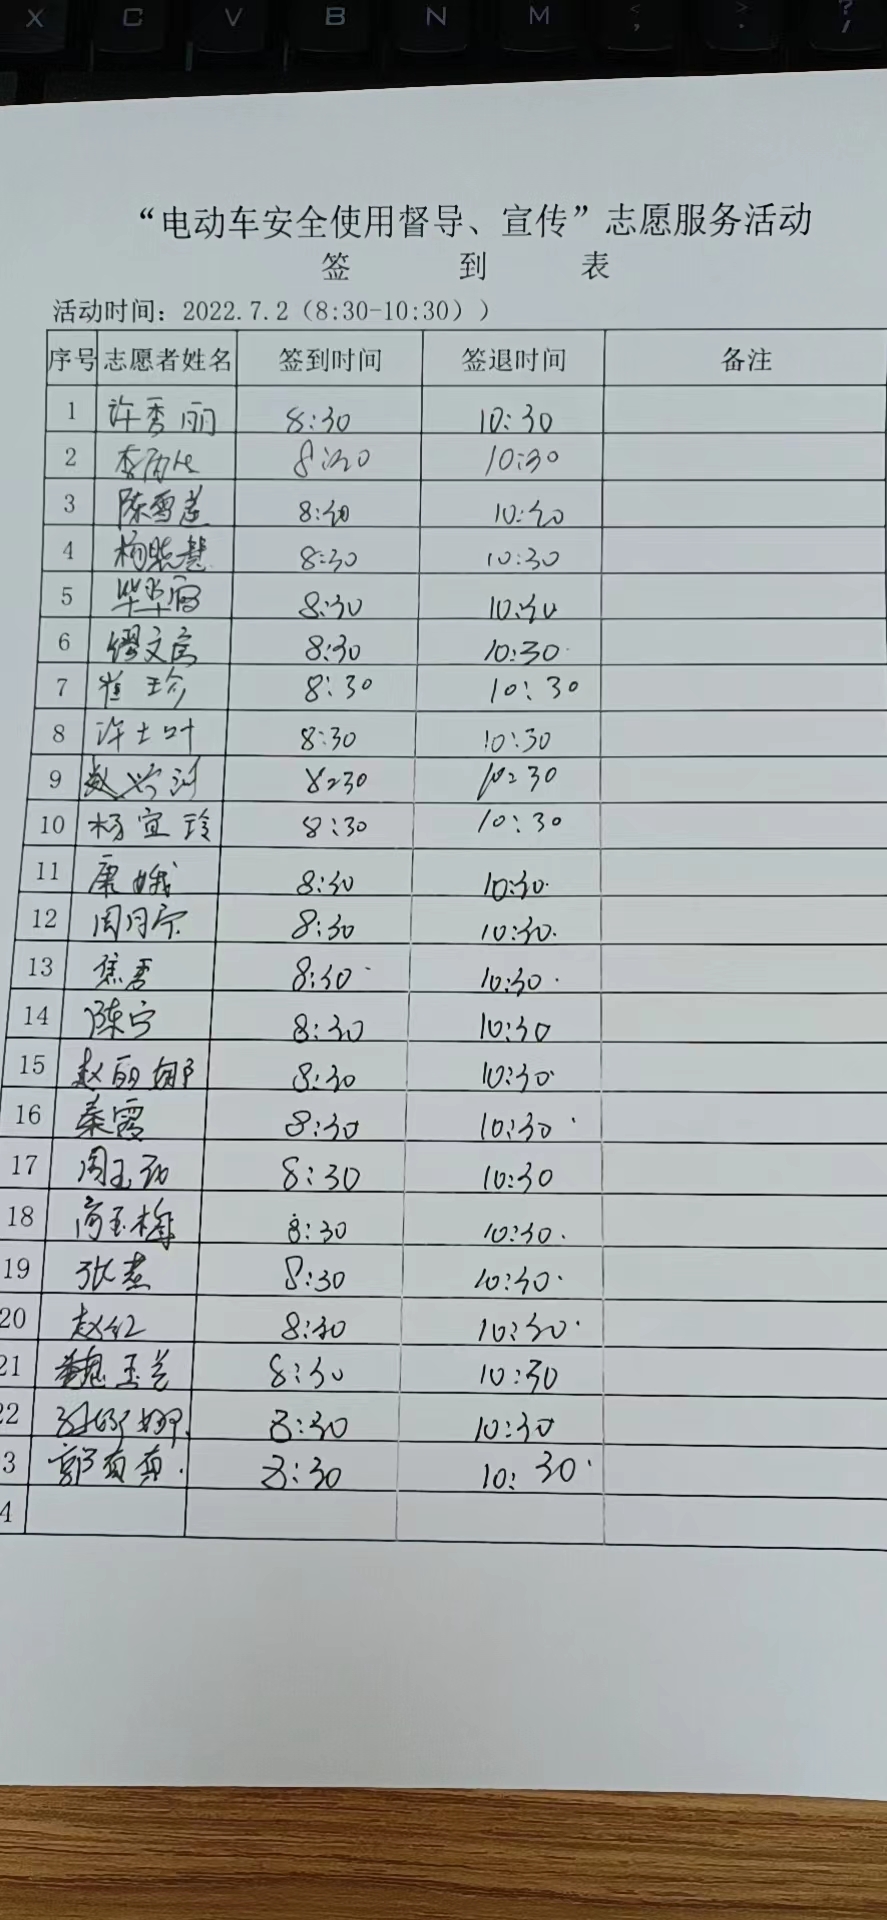 X C V B N M < , > . ? /
“电动车安全使用督导、宣传”志愿服务活动
签 到 表
活动时间：2022.7.2（8:30-10:30））
序号 志愿者姓名 签到时间 签退时间 备注
1 许秀丽 8:30 10:30
2 8:30 10:30
3 陈雪莲 8:30 10:30
4 杨晓慧 8:30 10:30
5 8:30 10:30
6 缪文富 8:30 10:30
7 崔珍 8:30 10:30
8 许士叶 8:30 10:30
9 8:30 10:30
10 杨宜玲 8:30 10:30
11 康娥 8:30 10:30
12 周月宗 8:30 10:30
13 焦秀 8:30 10:30
14 陈宁 8:30 10:30
15 赵丽娜 8:30 10:30
16 秦霞 8:30 10:30
17 周玉 8:30 10:30
18 高玉梅 8:30 10:30
19 张燕 8:30 10:30
20 赵红 8:30 10:30
21 魏玉兰 8:30 10:30
22 娜 8:30 10:30
3 郭真真 8:30 10:30
4